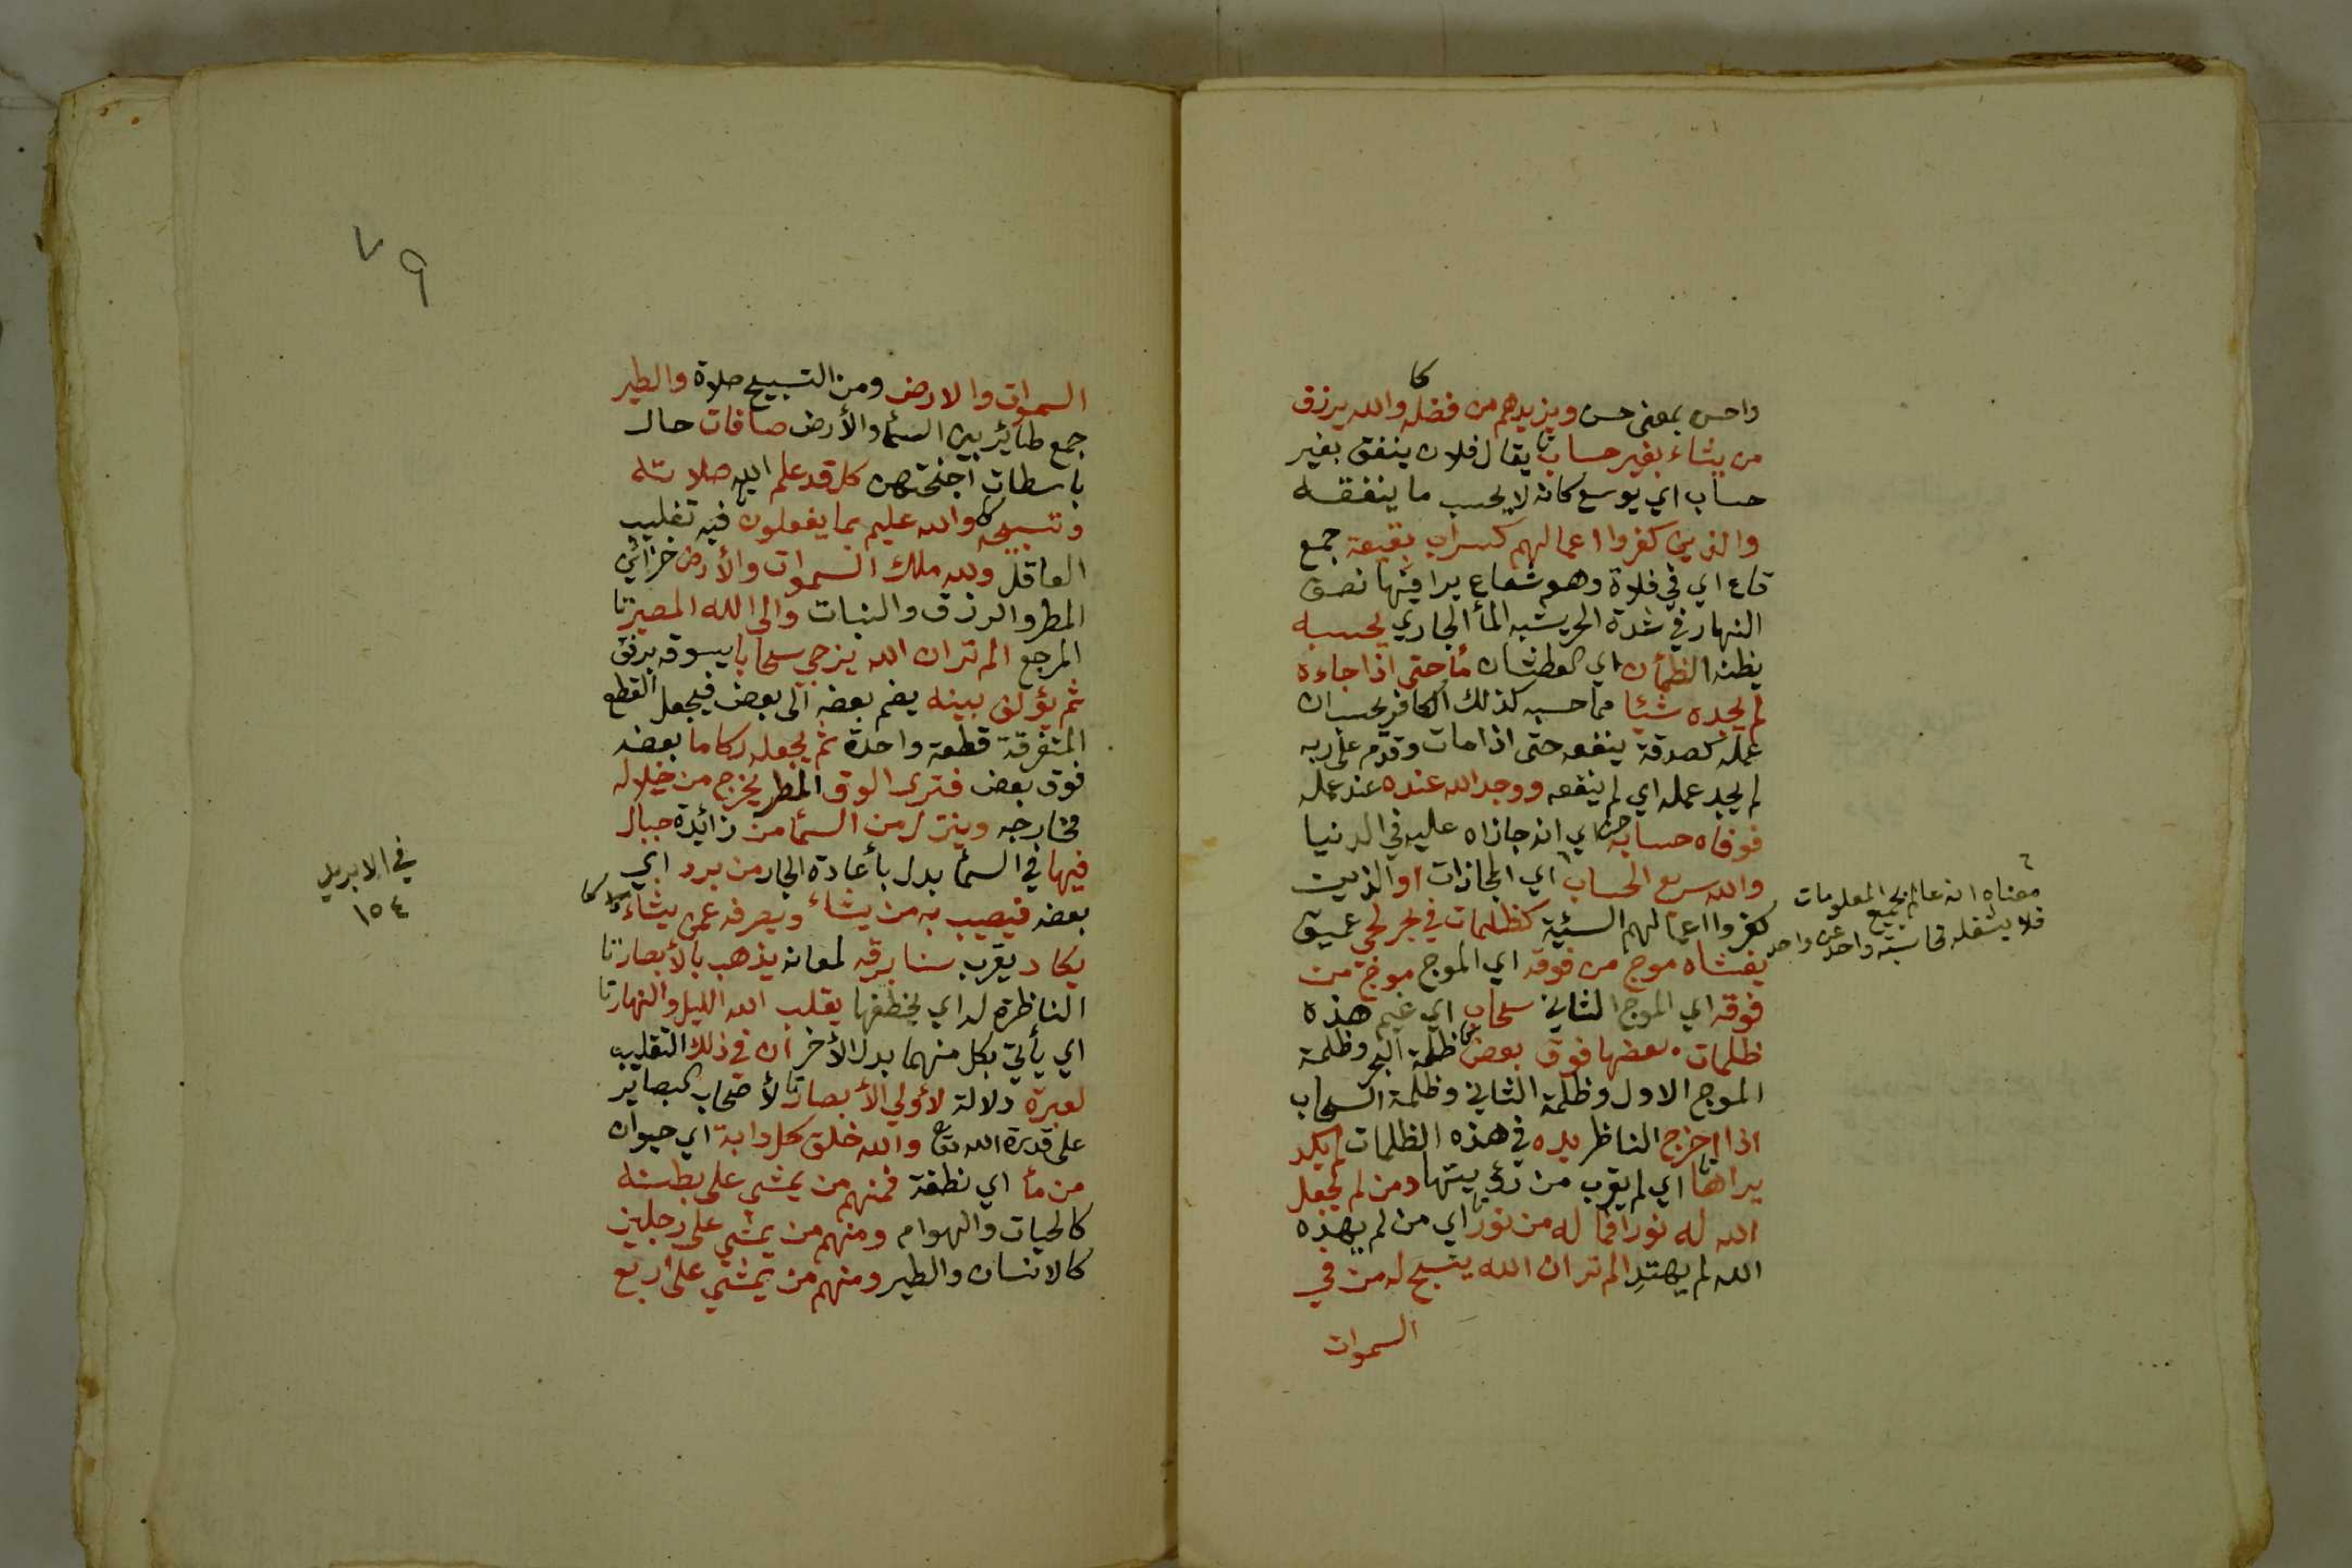 كا
واحسن بمعنى حسن ويزيدهم من فضله والله يرزق
من يشاء بغير حساب تا يقال فلان ينفق بغير
حساب اي يوسع كانه لا يحسب ما ينفقه
والذين كفروا اعمالهم كسراب بقيعة جمع
قاع اي في فلاة وهو شعاع يرا فيها نصف
النهار في شدة الحر يشبه المأ الجاري يحسبه
يظنه الظمأن اي العطشان مأ حتى اذا جاءه
لم يجده شيئا مما حسبه كذلك الكافر يحسب ان
عمله كصدقة ينفعه حتى اذا مات وقدم على ربه
لم يجد عمله اي لم ينفعه ووجد الله عنده عند عمله
فوفاه حسابه اي انه جازاه عليه في الدنيا
والله سريع الحساب اي المجازات او الذين
كفروا اعمالهم السيئة كظلمات في بحر لجي عميق
يغشاه موج من فوقه اي الموج موج من
فوقه اي الموج الثاني سحاب اي غيم هذه
ظلمات بعضها فوق بعض ظلمة البحر وظلمة
الموج الاول وظلمة الثاني وظلمة السحاب
اذا اخرج الناظر يده في هذه الظلمات لم يكد
يراها اي لم يقرب من رؤيتها ومن لم يجعل
الله له نورا فما له من نور اي من لم يهده
الله لم يهتدِ الم تر ان الله يسبح له من في
السموات
معناه انه عالم بجميع المعلومات
فلا يشغله محاسبة واحد عن واحد
٧٩
السموات والارض ومن التسبيح صلاة والطير
جمع طائر بين السمأ والأرض صافات حال
باسطات اجنحتهن كل قد علم الله صلاته
وتسبيحه كا والله عليم بما يفعلون فيه تغليب
العاقل ولله ملك السموات والأرض خزائن
المطر والرزق والنبات والى الله المصير تا
المرجع الم تر ان الله يزجي سحابا يسوقه برفق
ثم يؤلف بينه يضم بعضه الى بعض فيجعل القطع
المتفرقة قطعة واحدة ثم يجعله ركاما بعضه
فوق بعض فترى الودق المطر يخرج من خلاله
مخارجه وينزل من السمأ من زائدة جبال
فيها في السمأ بدل بأعادة الجار من برد اي
بعضه فيصيب به من يشاء ويصرفه عمن يشاء كا
يكاد يقرب سنا برقه لمعانه يذهب بالأبصار تا
الناظرة له اي يخطفها يقلب الله الليل والنهار تا
اي يأتي بكل منهما بدل الأخر ان في ذلك التقليب
لعبرة دلالة لأولي الأبصار تا لأصحاب البصاير
على قدرة الله تعا والله خلق كل دابة اي حيوان
من مأ اي نطفة فمنهم من يمشي على بطنه
كالحيات والهوام ومنهم من يمشي على رجلين
كالانسان والطير ومنهم من يمشي على اربع
في الابريل
١٥٤